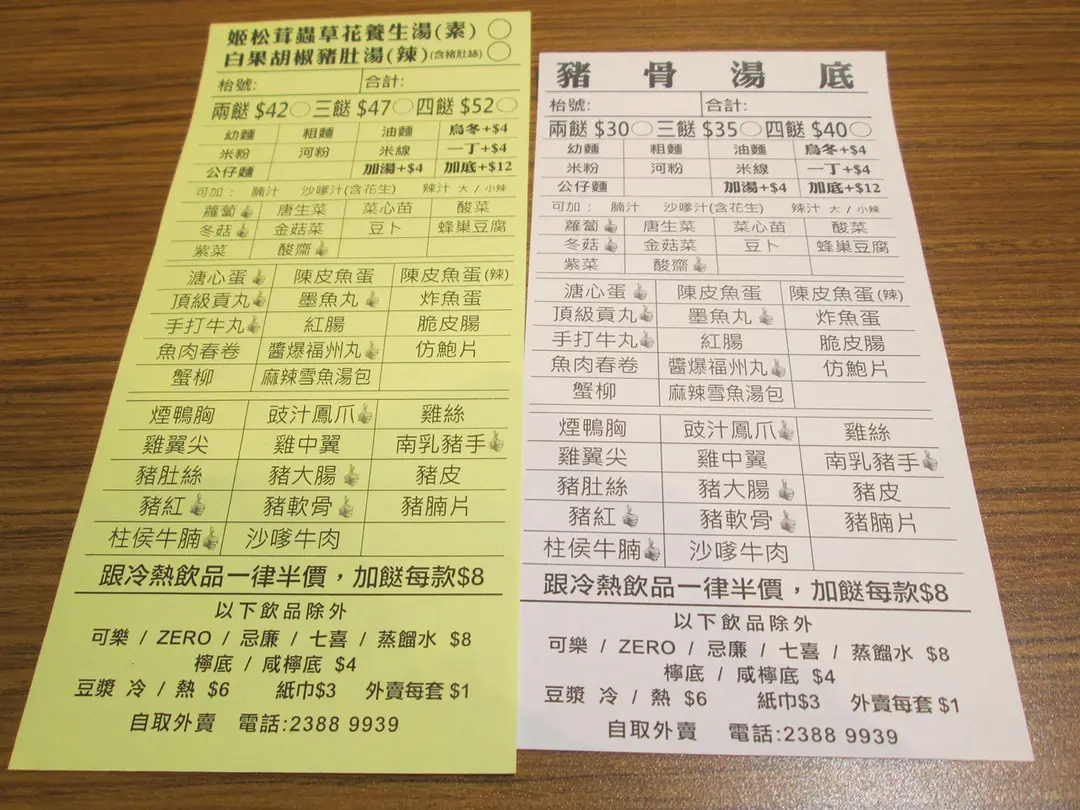 姬松茸蟲草花養生湯(素)
白果胡椒豬肚湯(辣)(含豬肚絲)
枱號: 合計:
兩餸 $42 三餸 $47 四餸 $52
幼麵 粗麵 油麵 烏冬+$4
米粉 河粉 米線 一丁+$4
公仔麵 加湯+$4 加底+$12
可加: 腩汁 沙嗲汁(含花生) 辣汁 大 / 小辣
蘿蔔 唐生菜 菜心苗 酸菜
冬菇 金菇菜 豆卜 蜂巢豆腐
紫菜 酸齋
溏心蛋 陳皮魚蛋 陳皮魚蛋(辣)
頂級貢丸 墨魚丸 炸魚蛋
手打牛丸 紅腸 脆皮腸
魚肉春卷 醬爆福州丸 仿鮑片
蟹柳 麻辣雪魚湯包
煙鴨胸 豉汁鳳爪 雞絲
雞翼尖 雞中翼 南乳豬手
豬肚絲 豬大腸 豬皮
豬紅 豬軟骨 豬腩片
柱侯牛腩 沙嗲牛肉
跟冷熱飲品一律半價，加餸每款$8
以下飲品除外
可樂 / ZERO / 忌廉 / 七喜 / 蒸餾水 $8
檸底 / 咸檸底 $4
豆漿 冷 / 熱 $6 紙巾$3 外賣每套 $1
自取外賣 電話:2388 9939
豬骨湯底
枱號: 合計:
兩餸 $30 三餸 $35 四餸 $40
幼麵 粗麵 油麵 烏冬+$4
米粉 河粉 米線 一丁+$4
公仔麵 加湯+$4 加底+$12
可加: 腩汁 沙嗲汁(含花生) 辣汁 大 / 小辣
蘿蔔 唐生菜 菜心苗 酸菜
冬菇 金菇菜 豆卜 蜂巢豆腐
紫菜 酸齋
溏心蛋 陳皮魚蛋 陳皮魚蛋(辣)
頂級貢丸 墨魚丸 炸魚蛋
手打牛丸 紅腸 脆皮腸
魚肉春卷 醬爆福州丸 仿鮑片
蟹柳 麻辣雪魚湯包
煙鴨胸 豉汁鳳爪 雞絲
雞翼尖 雞中翼 南乳豬手
豬肚絲 豬大腸 豬皮
豬紅 豬軟骨 豬腩片
柱侯牛腩 沙嗲牛肉
跟冷熱飲品一律半價，加餸每款$8
以下飲品除外
可樂 / ZERO / 忌廉 / 七喜 / 蒸餾水 $8
檸底 / 咸檸底 $4
豆漿 冷 / 熱 $6 紙巾$3 外賣每套 $1
自取外賣 電話:2388 9939